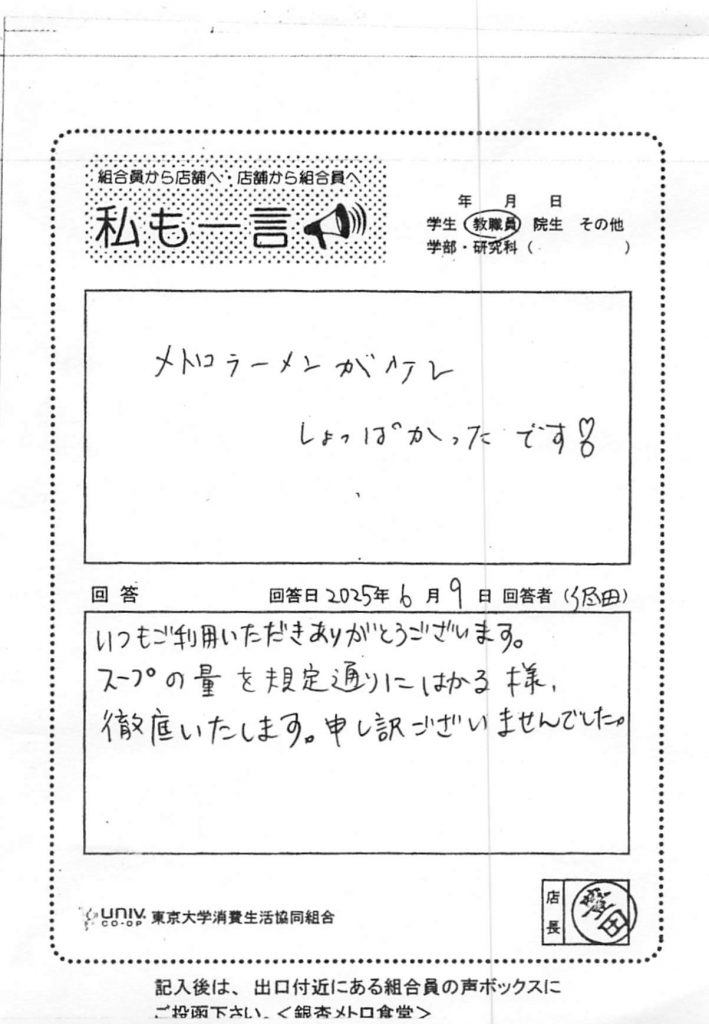 組合員から店舗へ・店舗から組合員へ
私も一言
年 月 日
学生・教職員 院生 その他
学部・研究科（ ）
メトロラーメンが
しょっぱかったです
回答 回答日 2025年 6月 9日 回答者（ 田）
いつもご利用いただきありがとうございます。
スープの量を規定通りにはかる様、
徹底いたします。申し訳ございませんでした。
UNIV. CO-OP 東京大学消費生活協同組合
店長
田
記入後は、出口付近にある組合員の声ボックスに
ご投函下さい。＜銀杏メトロ食堂＞